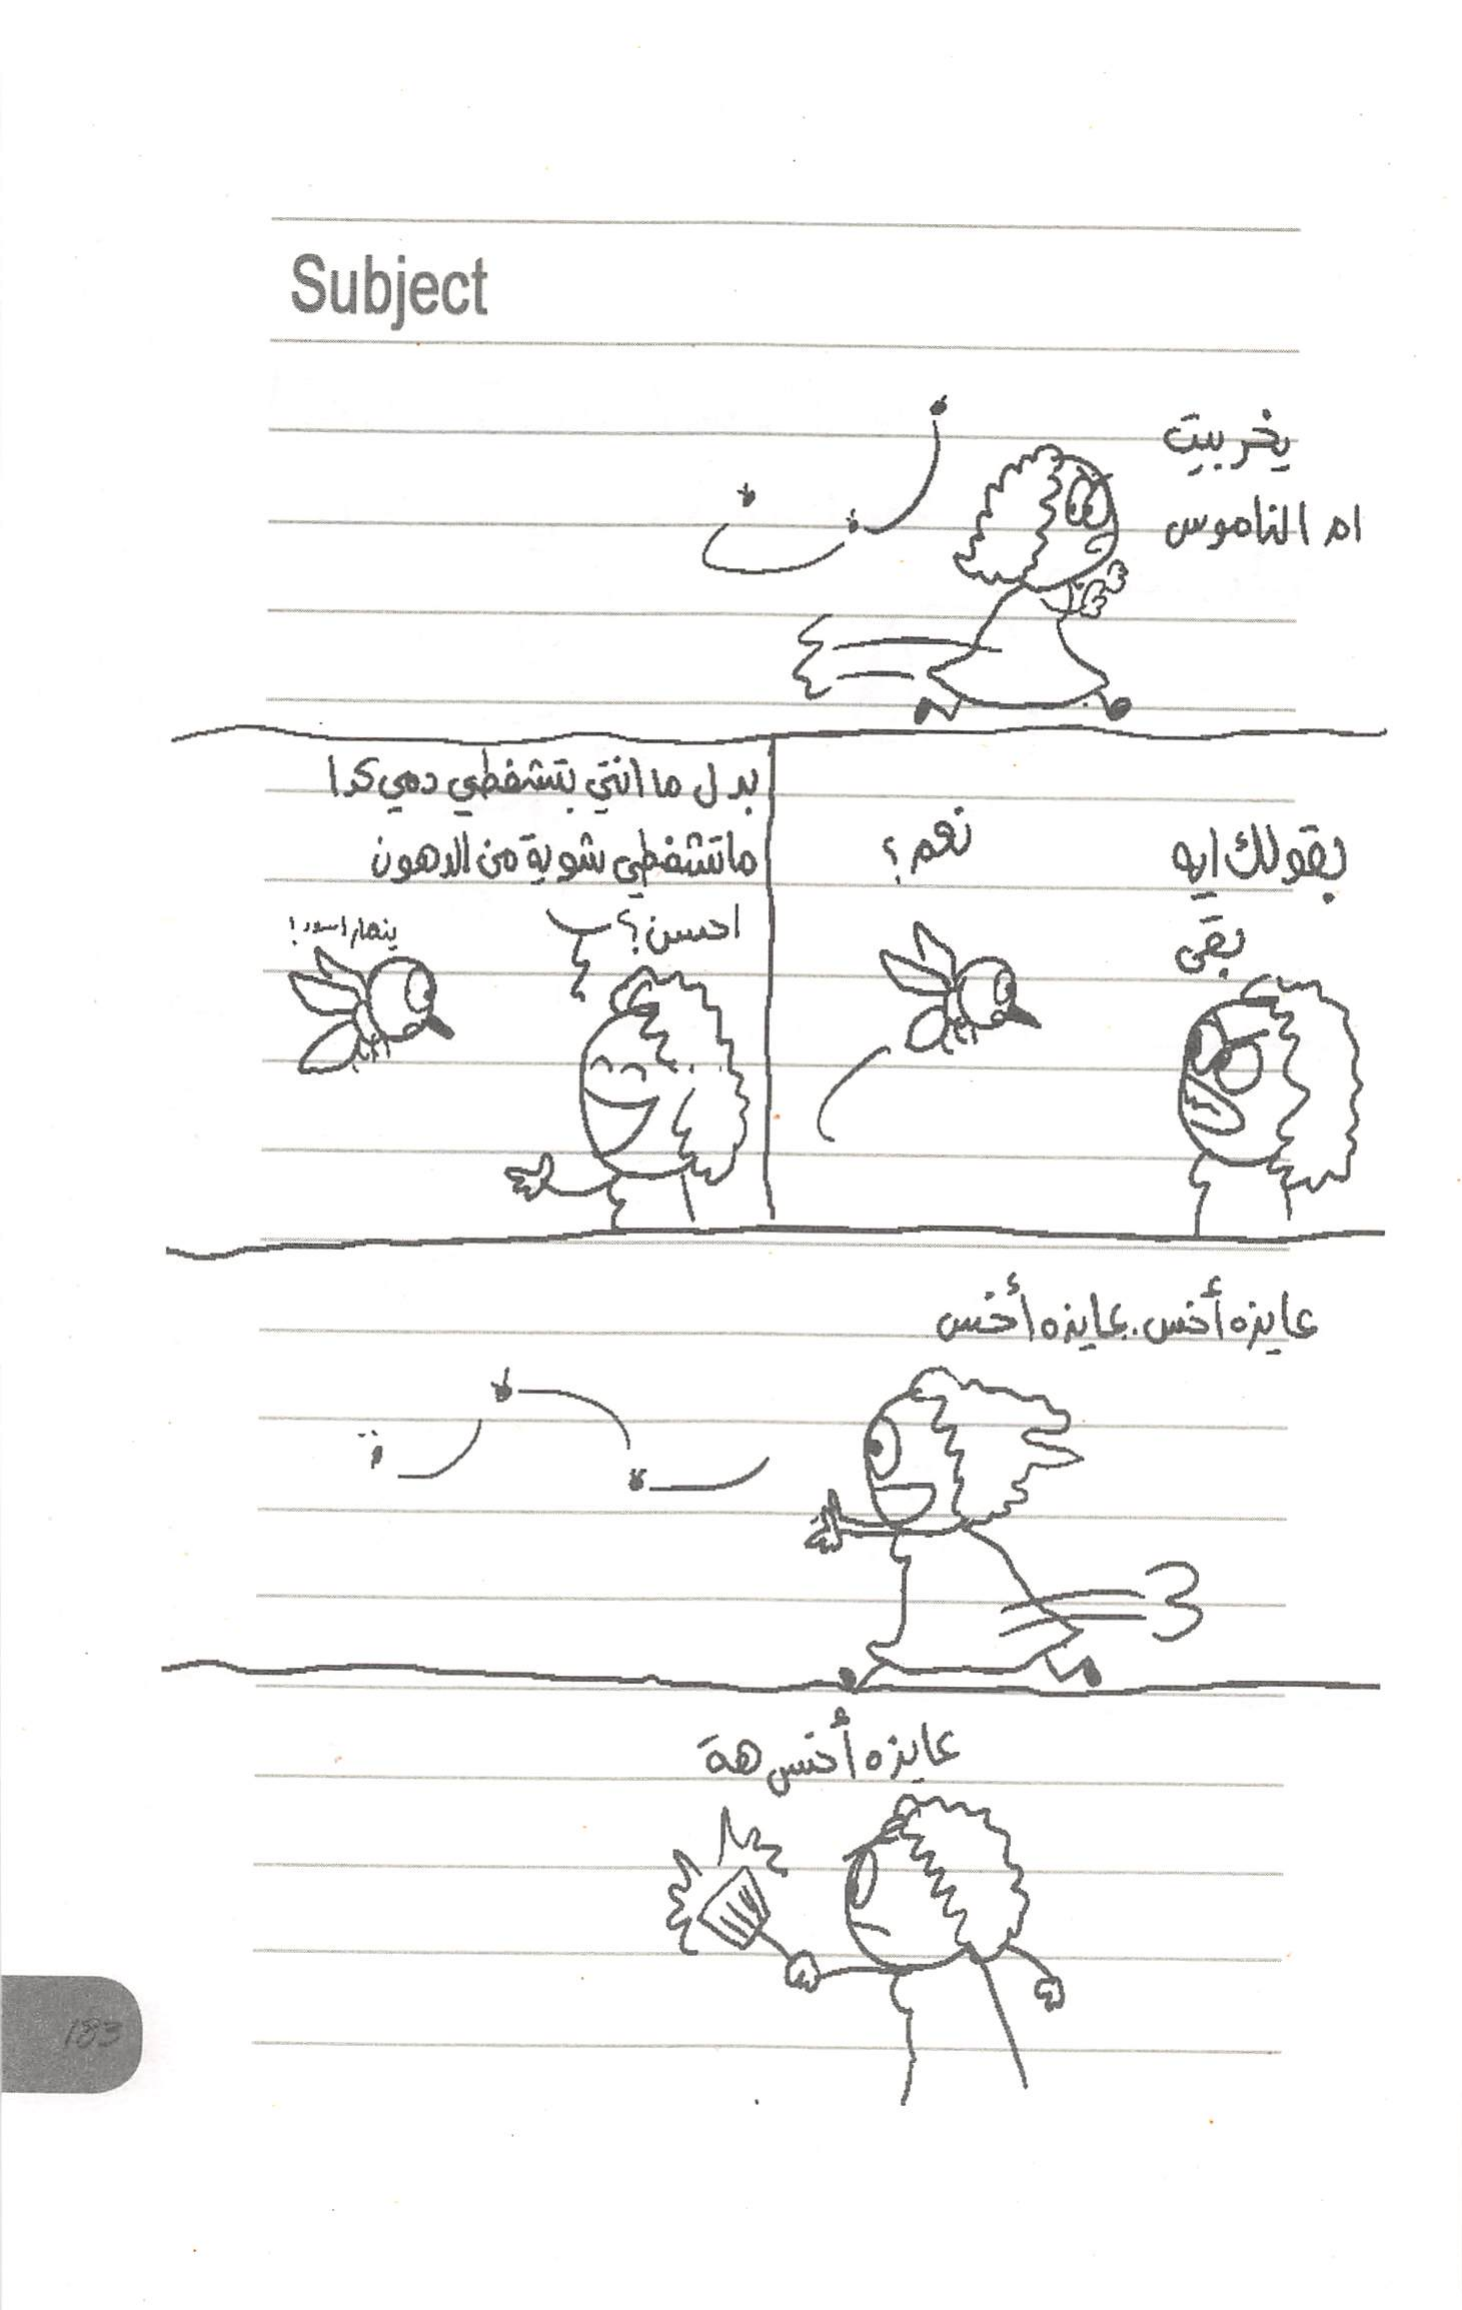 Subject
يخربيت
ام الناموس
بقولك ايه
بقى
نعم؟
بدل ما انتي بتشفطي دمي كدا
ماتشفطي شوية من الدهون
احسن؟
ينهار اسود!
عايزه أخس. عايزه أخس
عايزه أخس هه
183